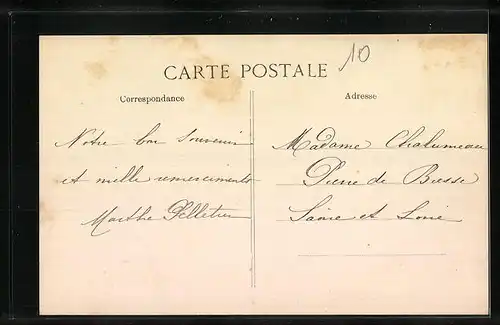 10
CARTE POSTALE
Correspondance
Adresse
Notre bon souvenir
et mille remerciments
Marthe Pelletier
Madame Chalumeau
de Bresse
Saône et Loire